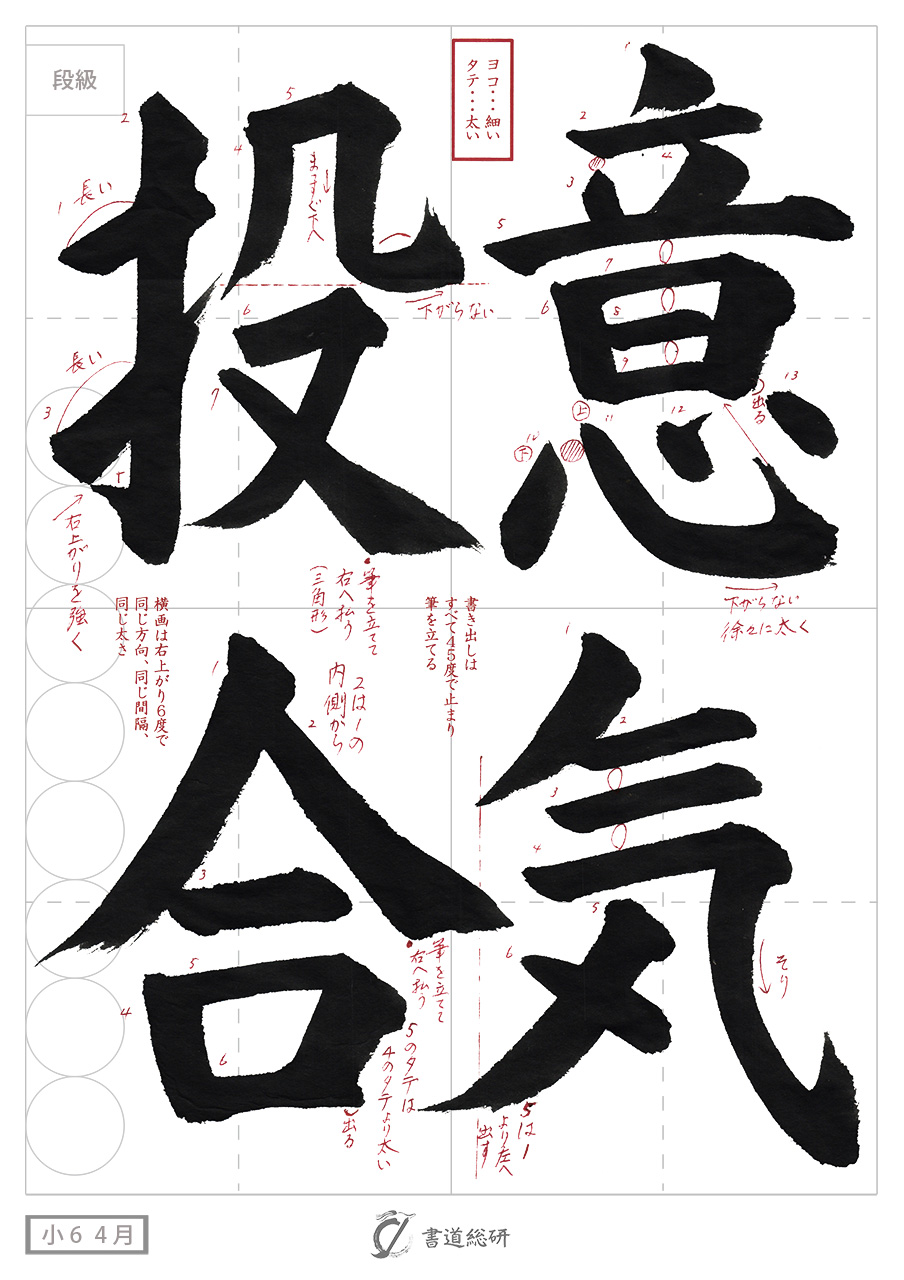 意気
投合
段級
ヨコ・・・細い
タテ・・・太い
1
2
3
4
5
6
7
8
9
10
11
12
13
上
下
出る
下がらない
徐々に太く
1
2
3
4
5
6
そり
5は1
より左へ
出す
1
2
3
4
5
6
7
長い
長い
まっすぐ下へ
下がらない
右上がりを強く
筆を立てて
右へ払う
(三角形)
書き出しは
すべて45度で止まり
筆を立てる
横画は右上がり6度で
同じ方向、同じ間隔、
同じ太さ
1
2
3
4
5
6
2は1の
内側から
筆を立てて
右へ払う
5のタテは
4のタテより太い
出る
小6 4月
書道総研